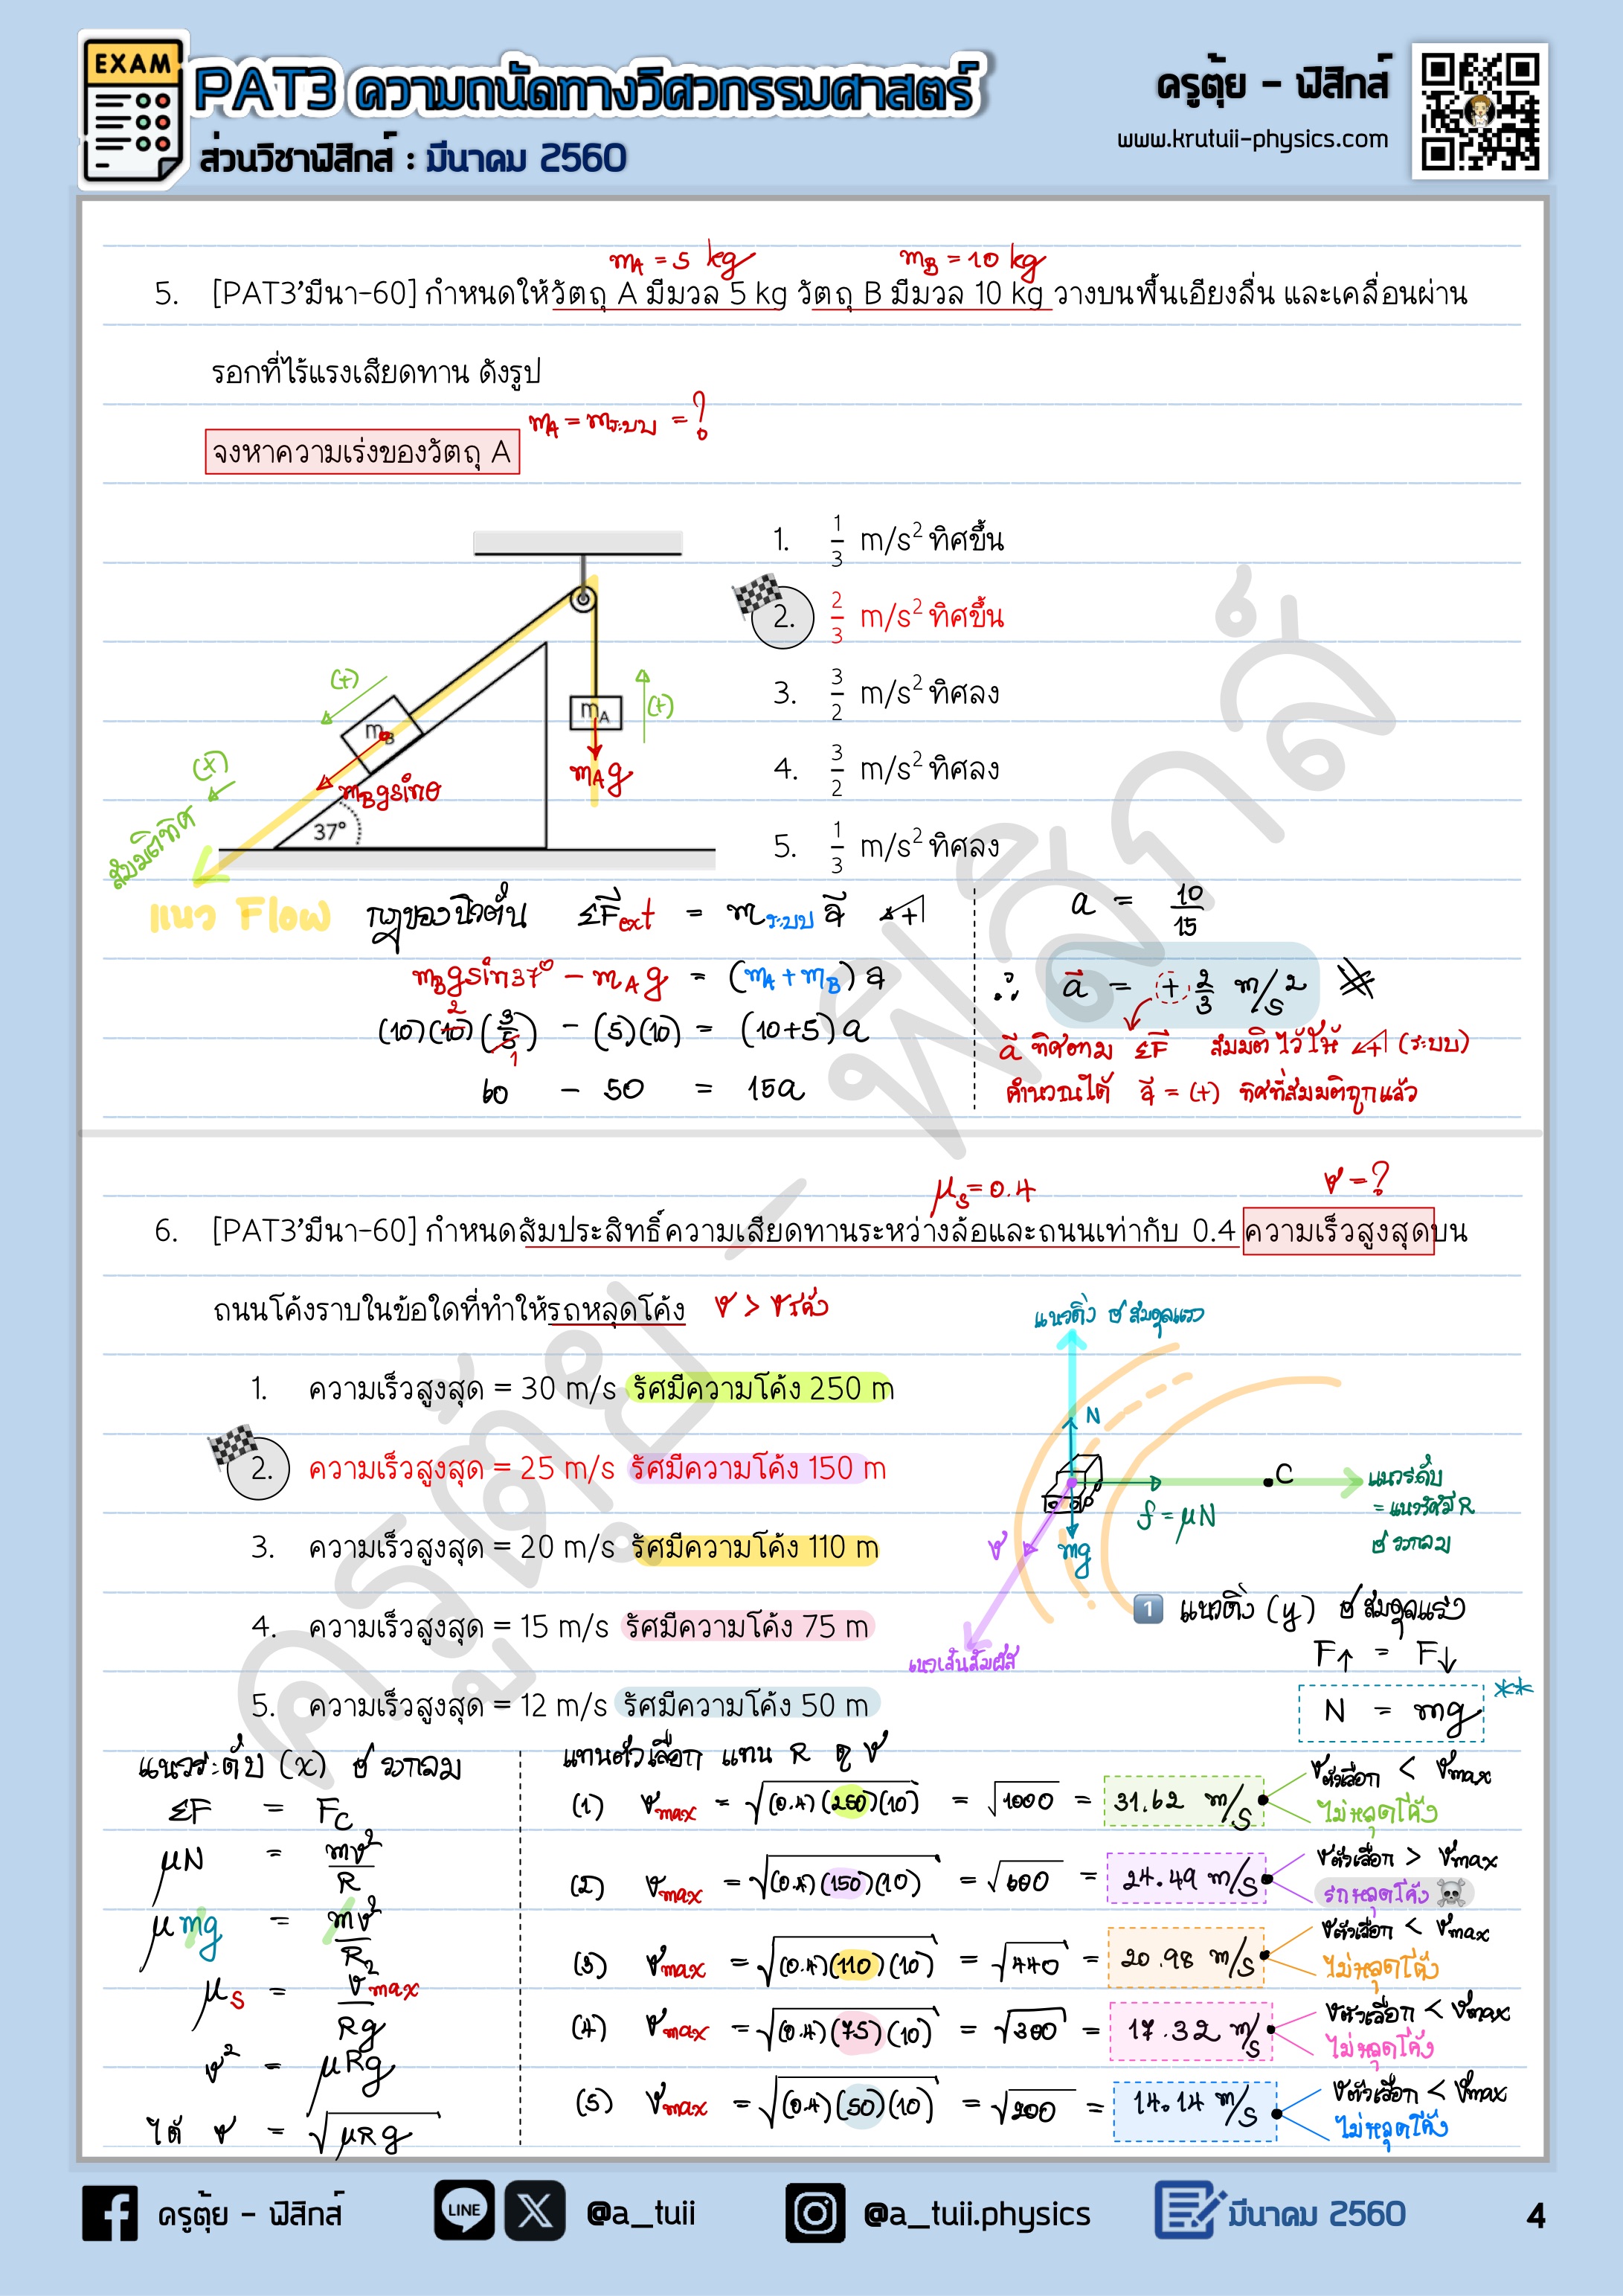 EXAM
PAT3 ความถนัดทางวิศวกรรมศาสตร์
ส่วนวิชาฟิสิกส์ : มีนาคม 2560
ครูตุ้ย – ฟิสิกส์
www.krutuii-physics.com
m_A = 5 kg
m_B = 10 kg
5. [PAT3'มีนา-60] กำหนดให้วัตถุ A มีมวล 5 kg วัตถุ B มีมวล 10 kg วางบนพื้นเอียงลื่น และเคลื่อนผ่าน
รอกที่ไร้แรงเสียดทาน ดังรูป
จงหาความเร่งของวัตถุ A
m_A = m_ระบบ = ?
1. 1/3 m/s² ทิศขึ้น
2. 2/3 m/s² ทิศขึ้น
3. 3/2 m/s² ทิศลง
4. 3/2 m/s² ทิศลง
5. 1/3 m/s² ทิศลง
(+)
m_B
m_A
(+)
(+)
m_B g sinθ
m_A g
37°
สมมติทิศ
แนว Flow
กฎของนิวตัน ΣF_ext = m_ระบบ a +
m_B g sin37° – m_A g = (m_A + m_B) a
2
(10)(10)(3/5) – (5)(10) = (10+5) a
1
60 – 50 = 15a
a = 10/15
∴ a = + 2/3 m/s2
a ทิศตาม ΣF สมมติไว้ให้ + (ระบบ)
คำนวณได้ a = (+) ทิศที่สมมติถูกแล้ว
μ_s = 0.4
v = ?
6. [PAT3'มีนา-60] กำหนดสัมประสิทธิ์ความเสียดทานระหว่างล้อและถนนเท่ากับ 0.4 ความเร็วสูงสุดบน
ถนนโค้งราบในข้อใดที่ทำให้รถหลุดโค้ง
v > v_โค้ง
1. ความเร็วสูงสุด = 30 m/s รัศมีความโค้ง 250 m
2. ความเร็วสูงสุด = 25 m/s รัศมีความโค้ง 150 m
3. ความเร็วสูงสุด = 20 m/s รัศมีความโค้ง 110 m
4. ความเร็วสูงสุด = 15 m/s รัศมีความโค้ง 75 m
5. ความเร็วสูงสุด = 12 m/s รัศมีความโค้ง 50 m
แนวดิ่ง สมดุลแรง
N
C
แนวระดับ
= แนวรัศมี R
วงกลม
f = μN
mg
v
แนวเส้นสัมผัส
1 แนวดิ่ง (y) สมดุลแรง
F↑ = F↓
N = mg **
แนวระดับ (x) วงกลม
ΣF = F_C
μN = mv²/R
μmg = mv²/R
μ_s = v²_max/Rg
v² = μRg
ได้ v = √μRg
แทนตัวเลือก แทน R ดู v
(1) v_max = √(0.4)(250)(10) = √1000 = 31.62 m/s
v_ตัวเลือก < v_max
ไม่หลุดโค้ง
(2) v_max = √(0.4)(150)(10) = √600 = 24.49 m/s
v_ตัวเลือก > v_max
รถหลุดโค้ง ☠
(3) v_max = √(0.4)(110)(10) = √440 = 20.98 m/s
v_ตัวเลือก < v_max
ไม่หลุดโค้ง
(4) v_max = √(0.4)(75)(10) = √300 = 17.32 m/s
v_ตัวเลือก < v_max
ไม่หลุดโค้ง
(5) v_max = √(0.4)(50)(10) = √200 = 14.14 m/s
v_ตัวเลือก < v_max
ไม่หลุดโค้ง
ครูตุ้ย – ฟิสิกส์
ครูตุ้ย – ฟิสิกส์
LINE
@a_tuii
@a_tuii.physics
มีนาคม 2560
4